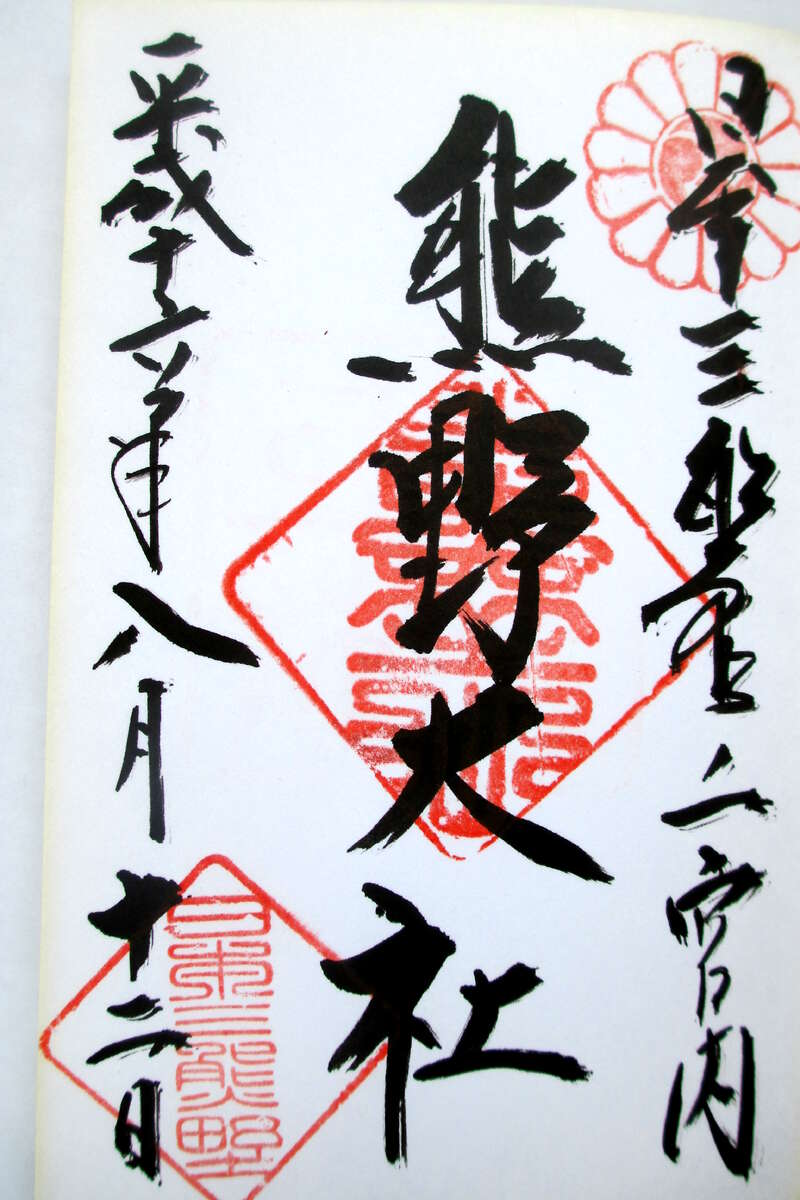 日本三熊野 宮内
熊野大社
平成十六年八月十二日
日本三熊野